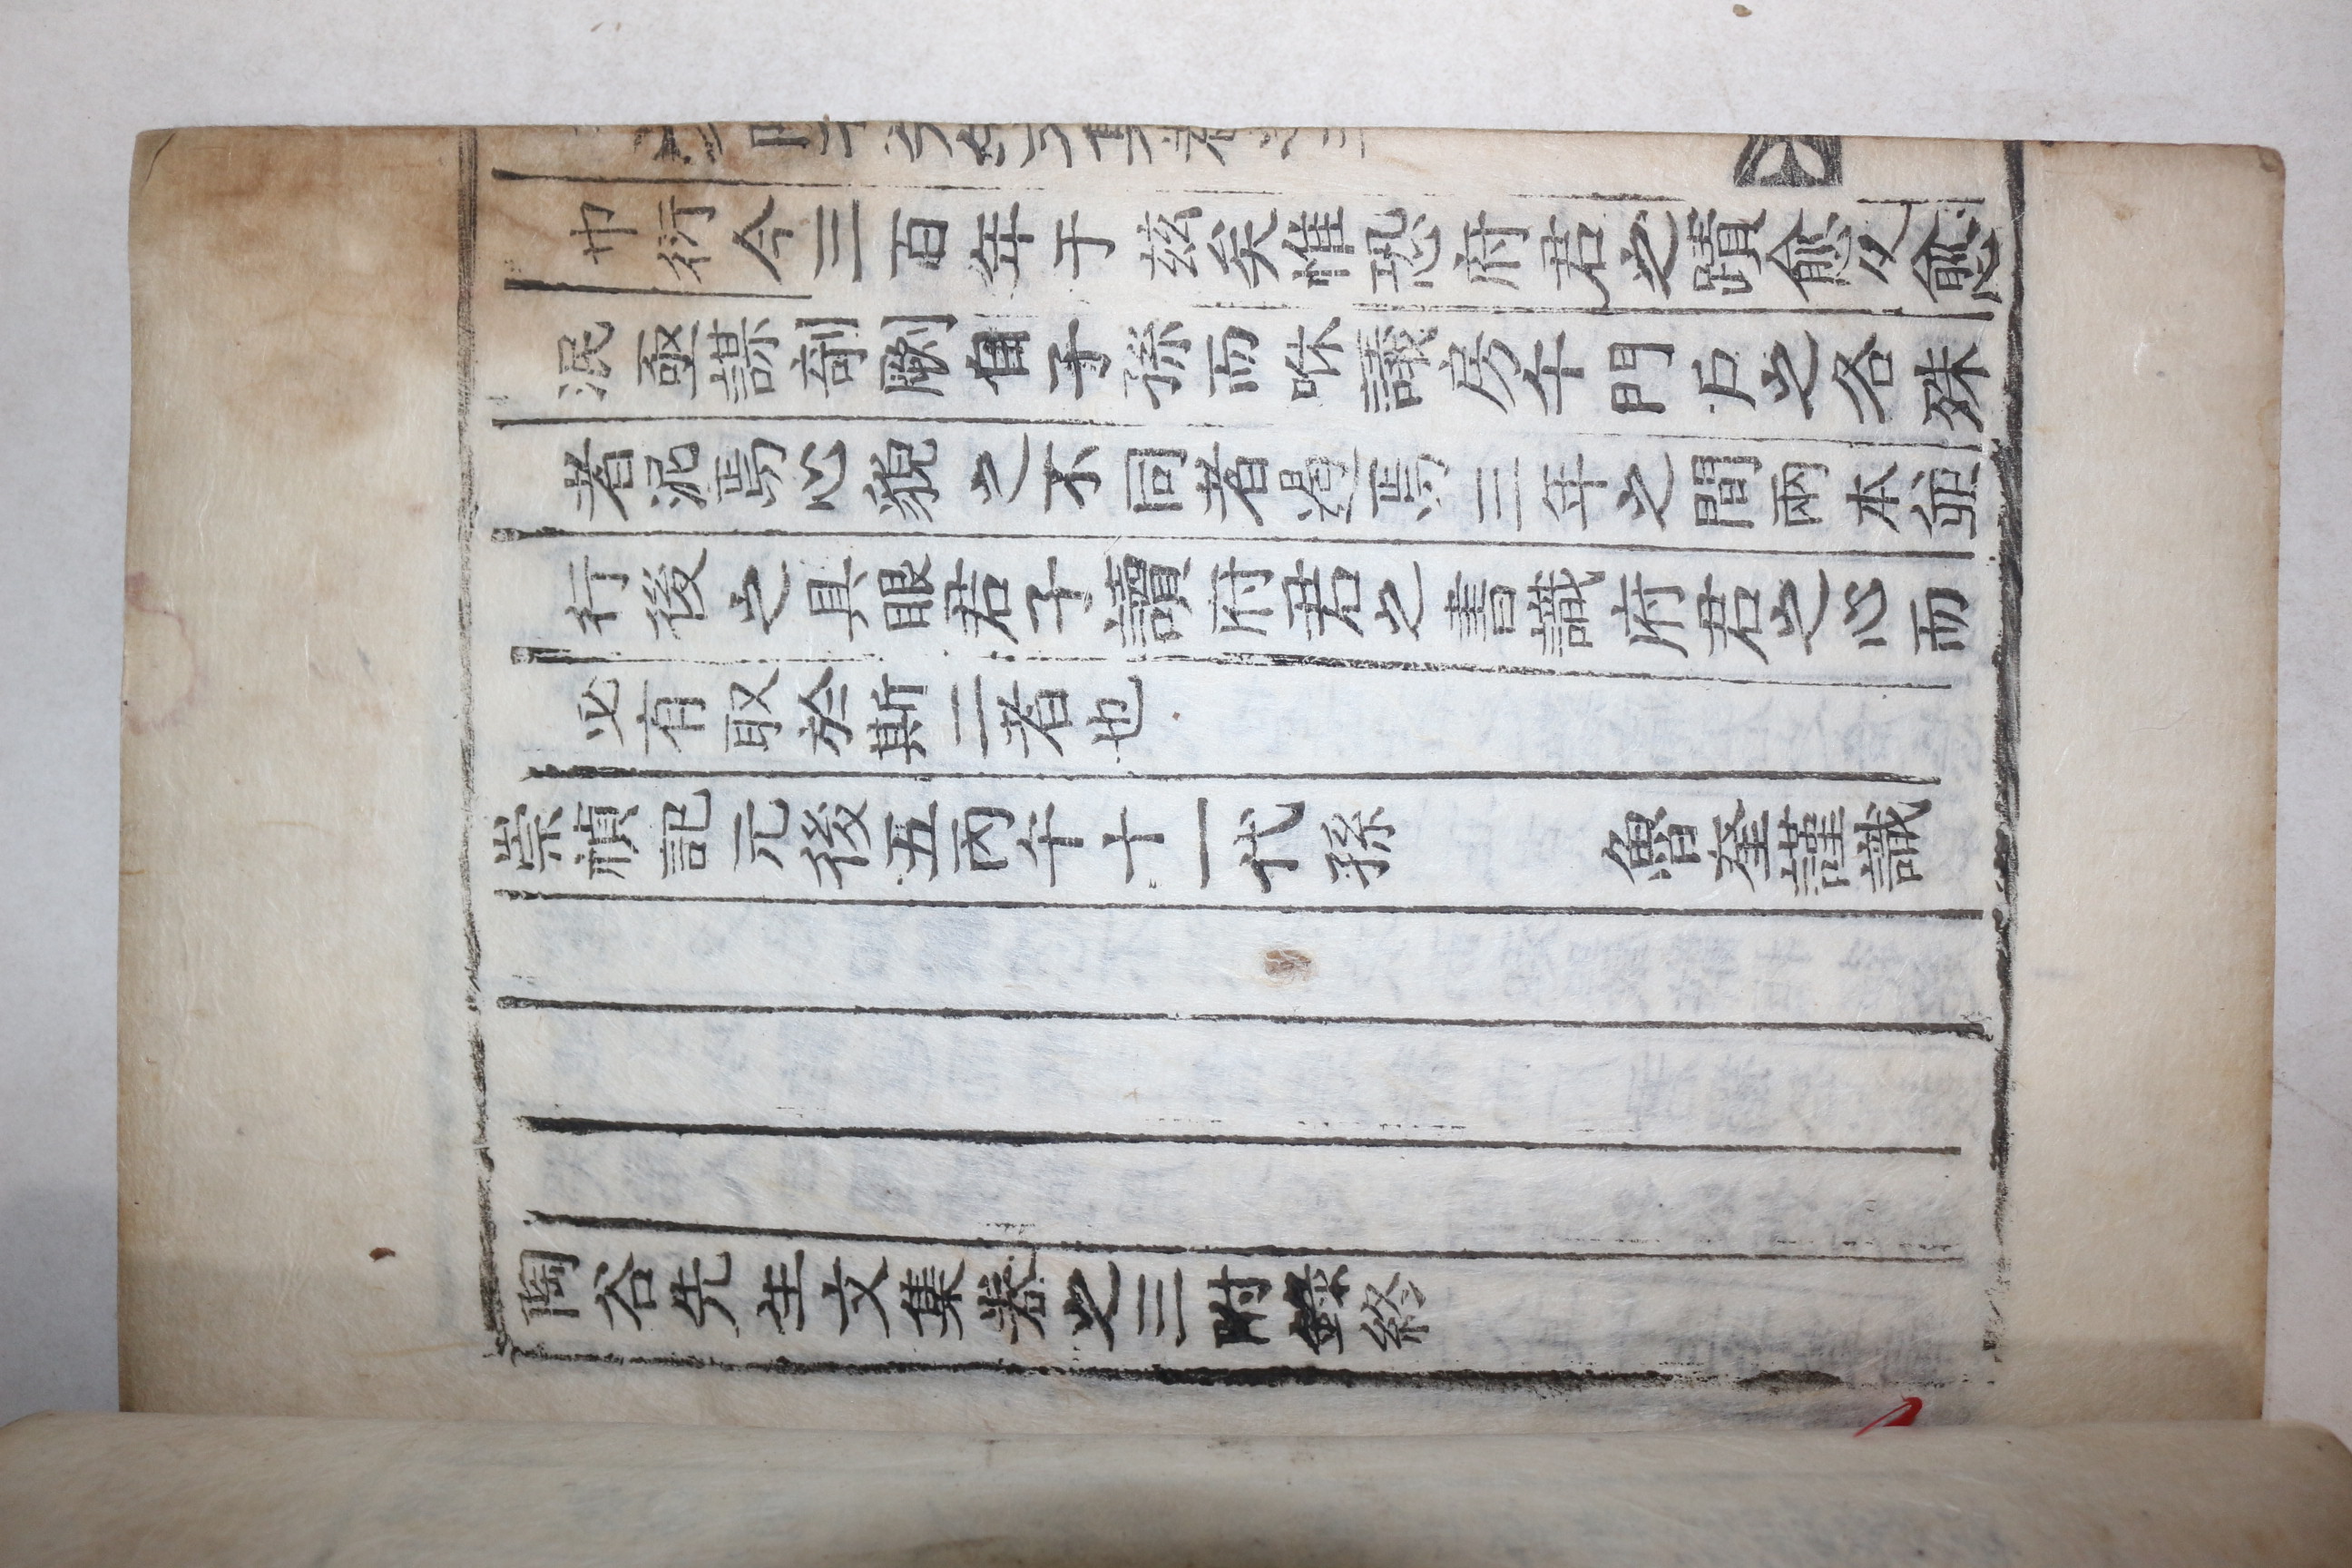 巾衍今三百年于玆矣惟恐府君之蹟愈久愈
泯亟謀剞劂自子孫而咻議旁午門戶之各殊
者泥焉心貌之不同者遏焉三年之間兩本竝
行後之具眼君子讀府君之書識府君之心而
必有取於斯二者也
崇禎記元後五丙午十一代孫 魯奎謹識
陶谷先生文集卷之三附錄終